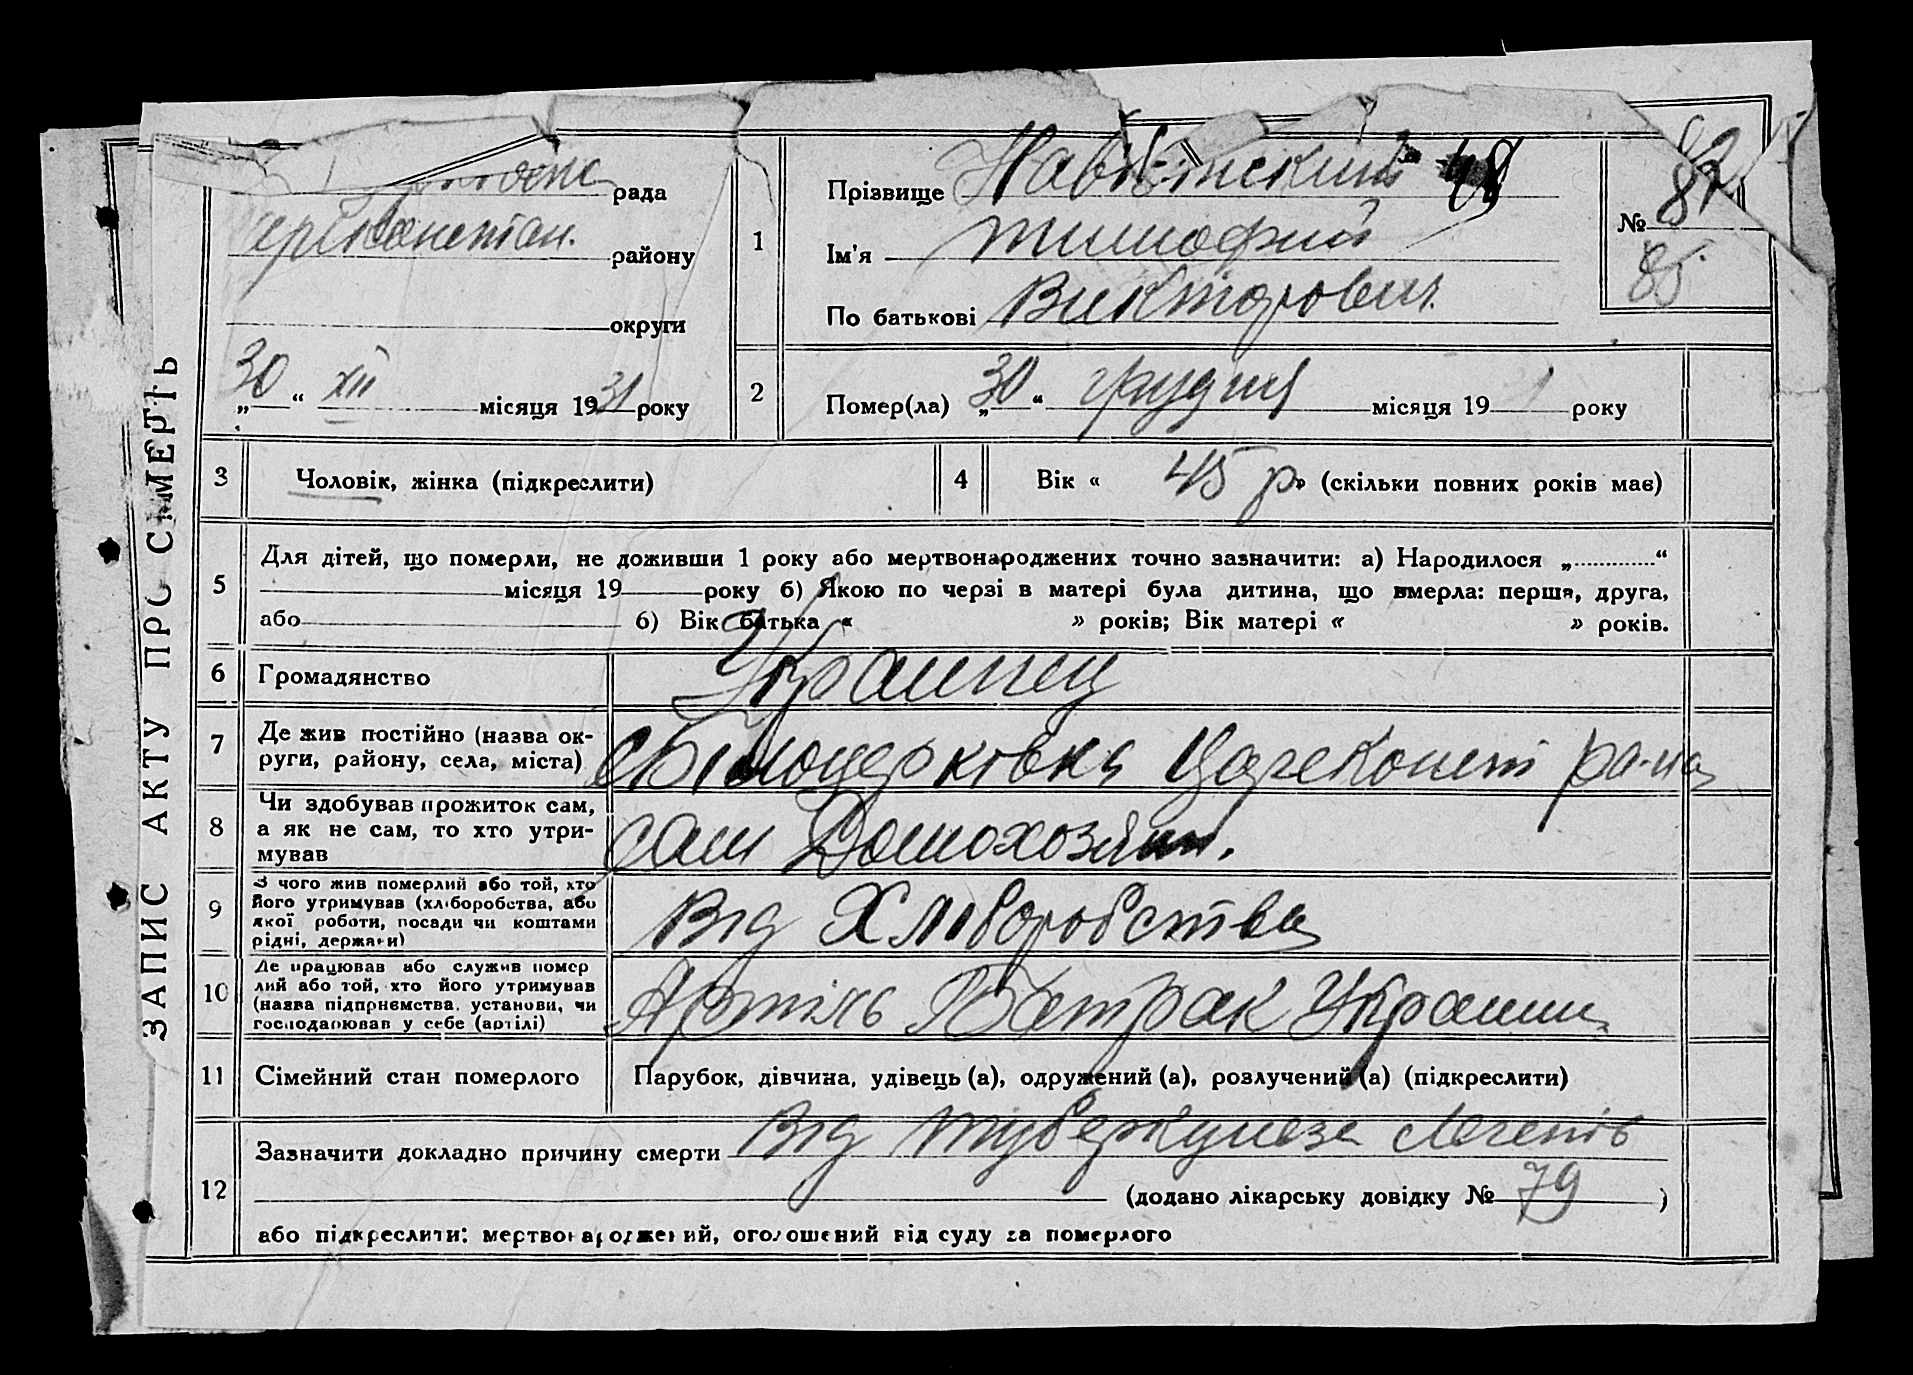 ЗАПИС АКТУ ПРО СМЕРТЬ
рада
району
округи
„30“ XII місяця 1931 року
1
Прізвище
Ім'я Тимофий
По батькові Викторович
№ 82
85
2
Помер(ла) „30“ грудня місяця 19 року
3 Чоловік, жінка (підкреслити)
4 Вік « 45 р» (скільки повних років має)
5
Для дітей, що померли, не доживши 1 року або мертвонароджених точно зазначити: а) Народилося „............“
місяця 19 року б) Якою по черзі в матері була дитина, що вмерла: перша, друга,
або 6) Вік батька « » років; Вік матері « » років.
6 Громадянство Украинец
7 Де жив постійно (назва ок-
руги, району, села, міста)
с Білоцерковка ра-на
8 Чи здобував прожиток сам,
а як не сам, то хто утри-
мував
сам Домохозяин.
9 З чого жив померлий або той, хто
його утримував (хліборобства, або
якої роботи, посади чи коштами
рідні, держави)
Від Хліборобства
10 Де працював або служив помер
лий або той, хто його утримував
(назва підприємства, установи, чи
господарював у себе (артілі)
Артіль Батрак Украини
11 Сімейний стан померлого
Парубок, дівчина, удівець (а), одружений (а), розлучений (а) (підкреслити)
12
Зазначити докладно причину смерти Від туберкулоза Легенів
(додано лікарську довідку № 79 )
або підкреслити: мертвонароджений, оголошений від суду за померлого